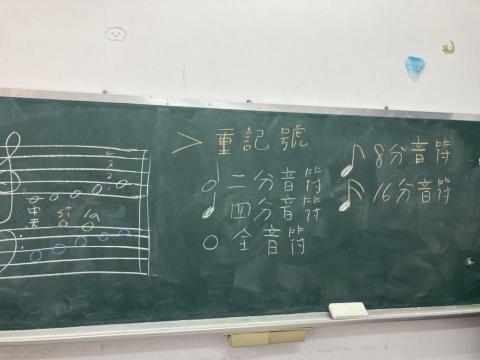 ＞重記號
二分音符
四分音符
全音符
8分音符
16分音符
si la
中